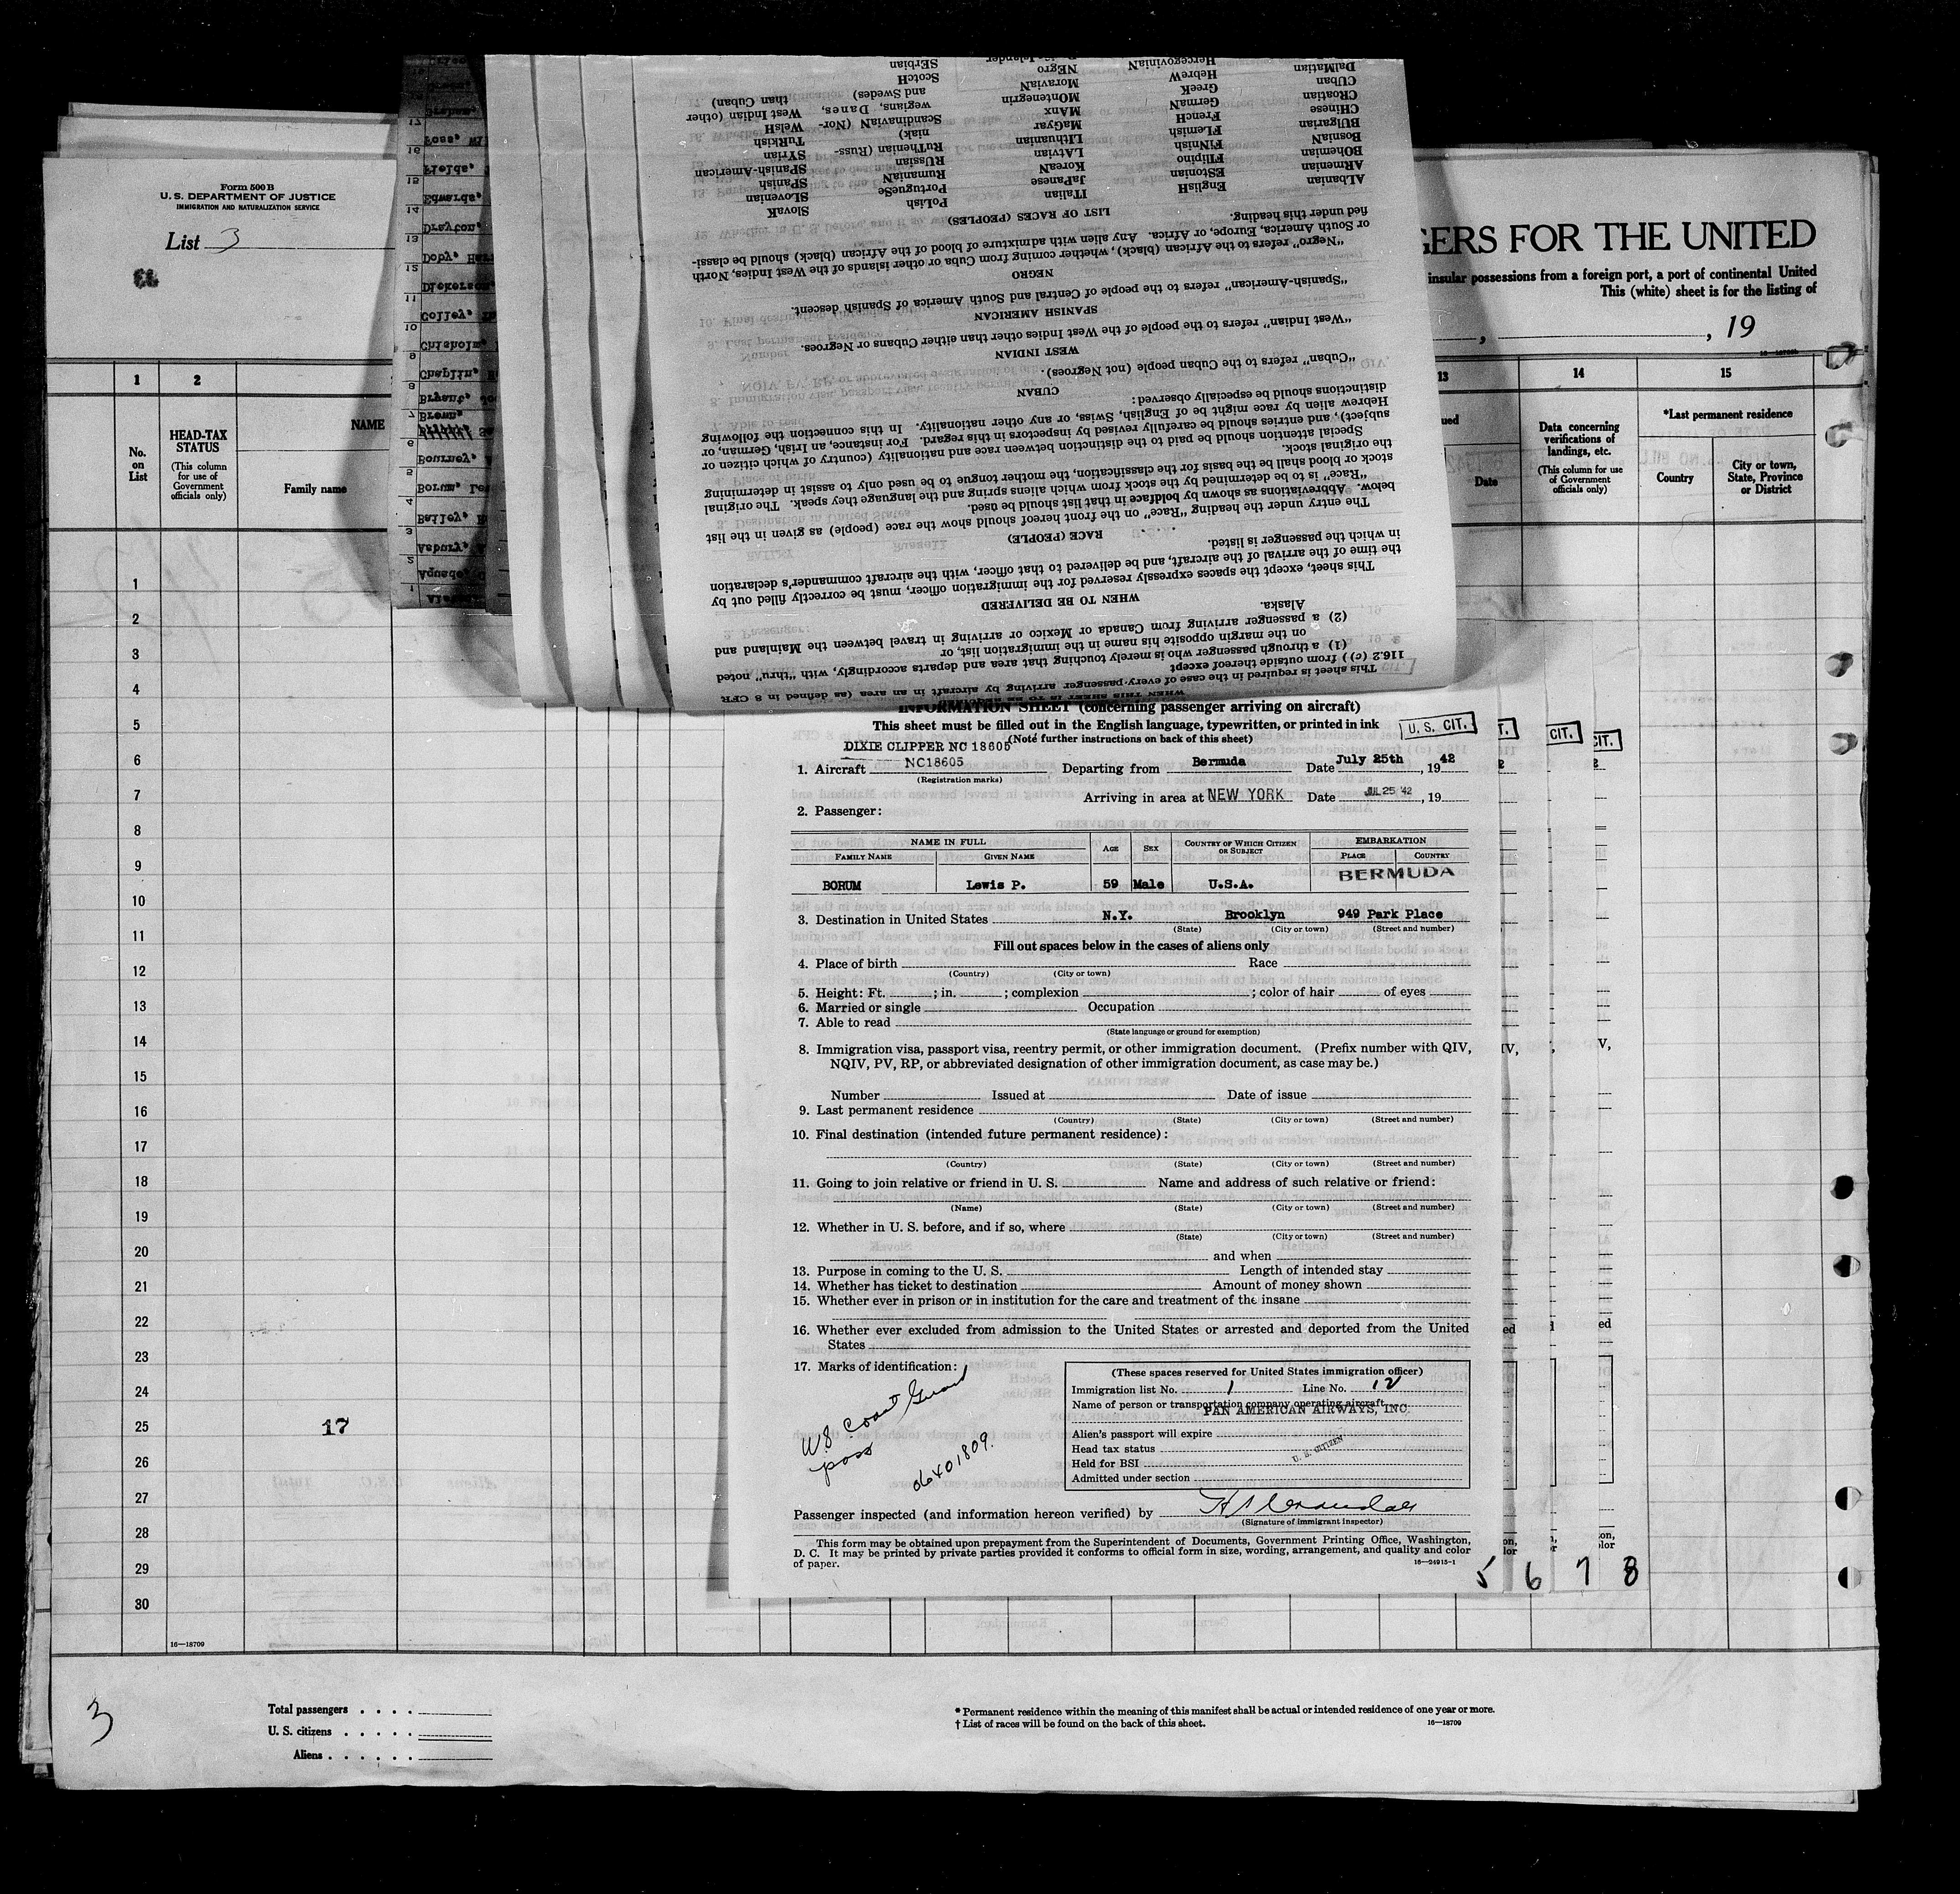 Form 500 B
U. S. DEPARTMENT OF JUSTICE
IMMIGRATION AND NATURALIZATION SERVICE
List 3
GERS FOR THE UNITED
insular possessions from a foreign port, a port of continental United
This (white) sheet is for the listing of
, , 19
1 2 13 14 15
No. on List
HEAD-TAX STATUS
(This column for use of Government officials only)
NAME
Family name
ued
Date
Data concerning verifications of landings, etc.
(This column for use of Government officials only)
*Last permanent residence
Country
City or town, State, Province or District
1
2
3
4
5
6
7
8
9
10
11
12
13
14
15
16
17
18
19
20
21
22
23
24
25
26
27
28
29
30
17
16—18709
3
Total passengers . . . .
U. S. citizens . . . . .
Aliens . . . . . .
* Permanent residence within the meaning of this manifest shall be actual or intended residence of one year or more.
† List of races will be found on the back of this sheet.
16—18709
This sheet is required in the case of every passenger arriving by aircraft in an area (as defined in 8 CFR
116.2 (c) ) from outside thereof except
(1) a through passenger who is merely touching that area and departs accordingly, with "thru" noted
on the margin opposite his name in the immigration list, or
(2) a passenger arriving from Canada or Mexico or arriving in travel between the Mainland and
Alaska.
WHEN TO BE DELIVERED
This sheet, except the spaces expressly reserved for the immigration officer, must be correctly filled out by
the time of the arrival of the aircraft, and be delivered to that officer, with the aircraft commander's declaration
in which the passenger is listed.
RACE (PEOPLE)
The entry under the heading "Race" on the front hereof should show the race (people) as given in the list
below. Abbreviations as shown by boldface in that list should be used.
"Race" is to be determined by the stock from which aliens spring and the language they speak. The original
stock or blood shall be the basis for the classification, the mother tongue to be used only to assist in determining
the original stock.
Special attention should be paid to the distinction between race and nationality (country of which citizen or
subject), and entries should be carefully revised by inspectors in this regard. For instance, an Irish, German, or
Hebrew alien by race might be of English, Swiss, or any other nationality. In this connection the following
distinctions should be especially observed:
CUBAN
"Cuban" refers to the Cuban people (not Negroes).
WEST INDIAN
"West Indian" refers to the people of the West Indies other than either Cubans or Negroes.
SPANISH AMERICAN
"Spanish-American" refers to the people of Central and South America of Spanish descent.
NEGRO
"Negro" refers to the African (black), whether coming from Cuba or other islands of the West Indies, North
or South America, Europe, or Africa. Any alien with admixture of blood of the African (black) should be classi-
fied under this heading.
LIST OF RACES (PEOPLES)
ALbanian EnglisH ITalian PoLish SlovaK
ARmenian EStonian JaPanese PortugueSe SLovenian
BOhemian FIlipino KoreaN RumaniaN SPanish
BosniaN FINnish LAtvian RUssian SPAnish-American
BUlgarian FLemish LIthuanian RuThenian (Russ- SYrian
CHinese FrencH MaGyar niak) TuRkish
CRoatian GermaN MAnx ScandinaviaN (Nor- WelsH
CUban GreeK MOntenegrin wegians, Danes, West Indian (other
DalMatian HebreW MoraviaN and Swedes) than Cuban)
HercegoviniaN NEgro ScotcH
SErbian
INFORMATION SHEET (concerning passenger arriving on aircraft)
This sheet must be filled out in the English language, typewritten, or printed in ink
(Note further instructions on back of this sheet)
U. S. CIT.
DIXIE CLIPPER NC 18605
1. Aircraft NC18605 Departing from Bermuda Date July 25th, 19 42
(Registration marks)
Arriving in area at NEW YORK Date JUL 25 '42, 19
2. Passenger:
NAME IN FULL AGE SEX COUNTRY OF WHICH CITIZEN OR SUBJECT EMBARKATION
FAMILY NAME GIVEN NAME PLACE COUNTRY
BORUM Lewis P. 59 Male U.S.A. BERMUDA
3. Destination in United States N.Y. Brooklyn 949 Park Place
(State) (City or town) (Street and number)
Fill out spaces below in the cases of aliens only
4. Place of birth Race
(Country) (City or town)
5. Height: Ft. ; in. ; complexion ; color of hair of eyes
6. Married or single Occupation
7. Able to read
(State language or ground for exemption)
8. Immigration visa, passport visa, reentry permit, or other immigration document. (Prefix number with QIV,
NQIV, PV, RP, or abbreviated designation of other immigration document, as case may be.)
Number Issued at Date of issue
9. Last permanent residence
(Country) (State) (City or town) (Street and number)
10. Final destination (intended future permanent residence):
(Country) (State) (City or town) (Street and number)
11. Going to join relative or friend in U. S. Name and address of such relative or friend:
(Name) (State) (City or town) (Street and number)
12. Whether in U. S. before, and if so, where
(State) (City or town) (Street and number)
and when
13. Purpose in coming to the U. S. Length of intended stay
14. Whether has ticket to destination Amount of money shown
15. Whether ever in prison or in institution for the care and treatment of the insane
16. Whether ever excluded from admission to the United States or arrested and deported from the United
States
17. Marks of identification:
US Coast Guard
pass
06401809.
(These spaces reserved for United States immigration officer)
Immigration list No. 1 Line No. 12
Name of person or transportation company operating aircraft
PAN AMERICAN AIRWAYS, INC.
Alien's passport will expire
Head tax status
U. S. CITIZEN
Held for BSI
Admitted under section
Passenger inspected (and information hereon verified) by
(Signature of immigrant inspector)
This form may be obtained upon prepayment from the Superintendent of Documents, Government Printing Office, Washington,
D. C. It may be printed by private parties provided it conforms to official form in size, wording, arrangement, and quality and color
of paper.
16—24915-1
5 6 7 8